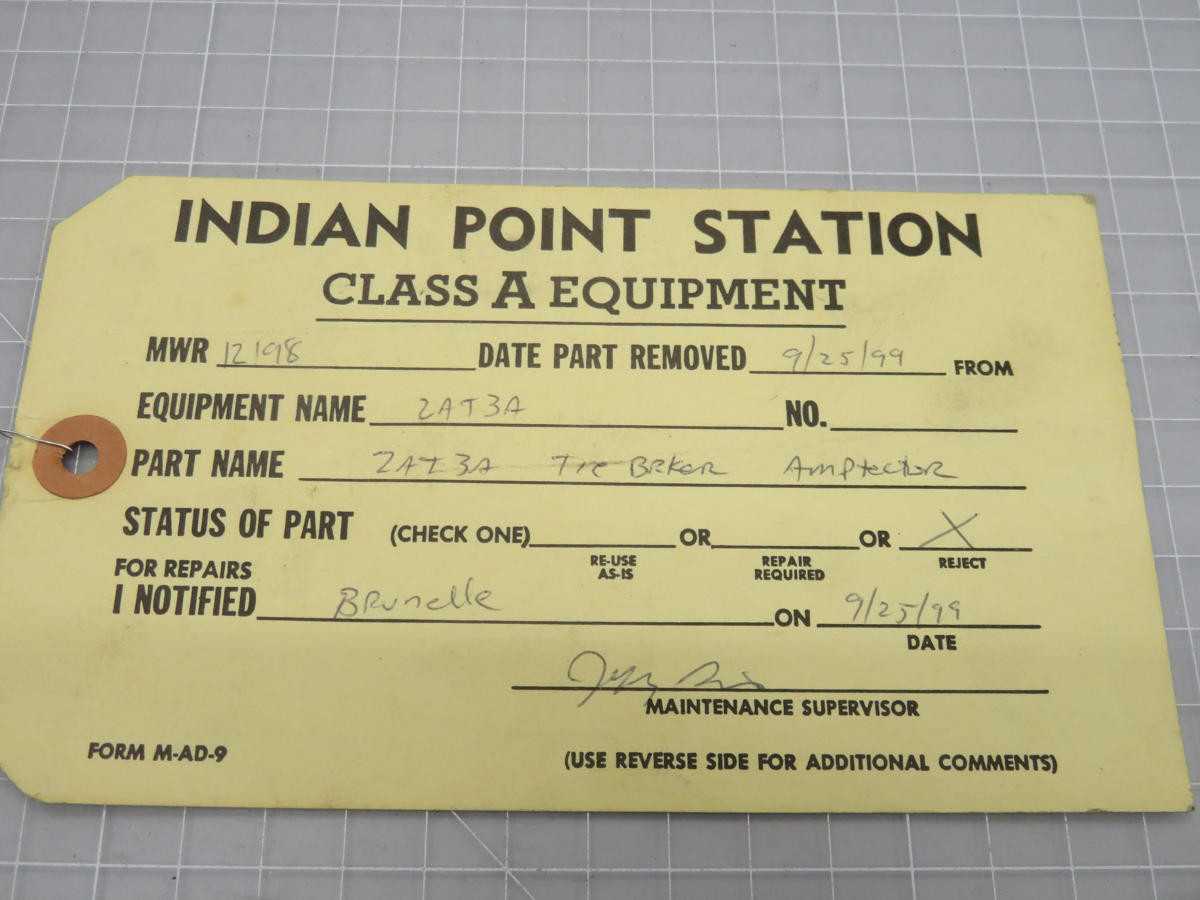 INDIAN POINT STATION
CLASS A EQUIPMENT
MWR 12198 DATE PART REMOVED 9/25/99 FROM
EQUIPMENT NAME 2AT3A NO.
PART NAME 2AT3A Tie BRKer AmpTecTOR
STATUS OF PART (CHECK ONE) OR OR X
RE-USE AS-IS REPAIR REQUIRED REJECT
FOR REPAIRS
I NOTIFIED Brunelle ON 9/25/99
DATE
MAINTENANCE SUPERVISOR
FORM M-AD-9 (USE REVERSE SIDE FOR ADDITIONAL COMMENTS)